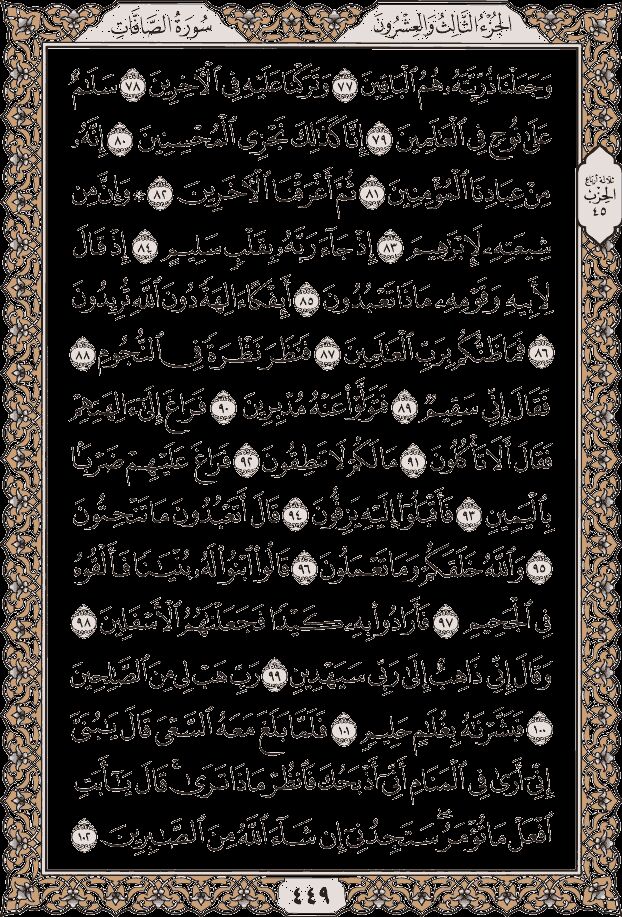 الجزء الثالث والعشرون
سورة الصافات
وَجَعَلْنَا ذُرِّيَّتَهُۥ هُمُ ٱلْبَاقِينَ ٧٧ وَتَرَكْنَا عَلَيْهِ فِى ٱلْـَٔاخِرِينَ ٧٨ سَلَـٰمٌ
عَلَىٰ نُوحٍ فِى ٱلْعَـٰلَمِينَ ٧٩ إِنَّا كَذَٰلِكَ نَجْزِى ٱلْمُحْسِنِينَ ٨٠ إِنَّهُۥ
مِنْ عِبَادِنَا ٱلْمُؤْمِنِينَ ٨١ ثُمَّ أَغْرَقْنَا ٱلْـَٔاخَرِينَ ٨٢ ۞ وَإِنَّ مِن
ثلاثة أرباع
الحزب
٤٥
شِيعَتِهِۦ لَإِبْرَٰهِيمَ ٨٣ إِذْ جَآءَ رَبَّهُۥ بِقَلْبٍ سَلِيمٍ ٨٤ إِذْ قَالَ
لِأَبِيهِ وَقَوْمِهِۦ مَاذَا تَعْبُدُونَ ٨٥ أَئِفْكًا ءَالِهَةً دُونَ ٱللَّهِ تُرِيدُونَ
٨٦ فَمَا ظَنُّكُم بِرَبِّ ٱلْعَـٰلَمِينَ ٨٧ فَنَظَرَ نَظْرَةً فِى ٱلنُّجُومِ ٨٨
فَقَالَ إِنِّى سَقِيمٌ ٨٩ فَتَوَلَّوْا۟ عَنْهُ مُدْبِرِينَ ٩٠ فَرَاغَ إِلَىٰٓ ءَالِهَتِهِمْ
فَقَالَ أَلَا تَأْكُلُونَ ٩١ مَا لَكُمْ لَا تَنطِقُونَ ٩٢ فَرَاغَ عَلَيْهِمْ ضَرْبًۢا
بِٱلْيَمِينِ ٩٣ فَأَقْبَلُوٓا۟ إِلَيْهِ يَزِفُّونَ ٩٤ قَالَ أَتَعْبُدُونَ مَا تَنْحِتُونَ
٩٥ وَٱللَّهُ خَلَقَكُمْ وَمَا تَعْمَلُونَ ٩٦ قَالُوا۟ ٱبْنُوا۟ لَهُۥ بُنْيَـٰنًا فَأَلْقُوهُ
فِى ٱلْجَحِيمِ ٩٧ فَأَرَادُوا۟ بِهِۦ كَيْدًا فَجَعَلْنَـٰهُمُ ٱلْأَسْفَلِينَ ٩٨
وَقَالَ إِنِّى ذَاهِبٌ إِلَىٰ رَبِّى سَيَهْدِينِ ٩٩ رَبِّ هَبْ لِى مِنَ ٱلصَّـٰلِحِينَ
١٠٠ فَبَشَّرْنَـٰهُ بِغُلَـٰمٍ حَلِيمٍ ١٠١ فَلَمَّا بَلَغَ مَعَهُ ٱلسَّعْىَ قَالَ يَـٰبُنَىَّ
إِنِّىٓ أَرَىٰ فِى ٱلْمَنَامِ أَنِّىٓ أَذْبَحُكَ فَٱنظُرْ مَاذَا تَرَىٰ ۚ قَالَ يَـٰٓأَبَتِ
ٱفْعَلْ مَا تُؤْمَرُ ۖ سَتَجِدُنِىٓ إِن شَآءَ ٱللَّهُ مِنَ ٱلصَّـٰبِرِينَ ١٠٢
٤٤٩